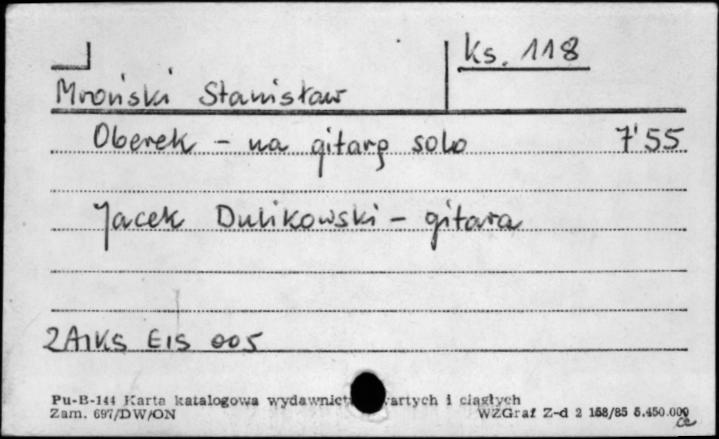 ks. 118
Mroński Stanisław
Oberek - na gitarę solo 7'55
Jacek Dulikowski - gitara
ZAIKS EIS 005
Pu-B-144 Karta katalogowa wydawnict artych i ciągłych
Zam. 697/DW/ON WZGraf Z-d 2 158/85 5.450.000